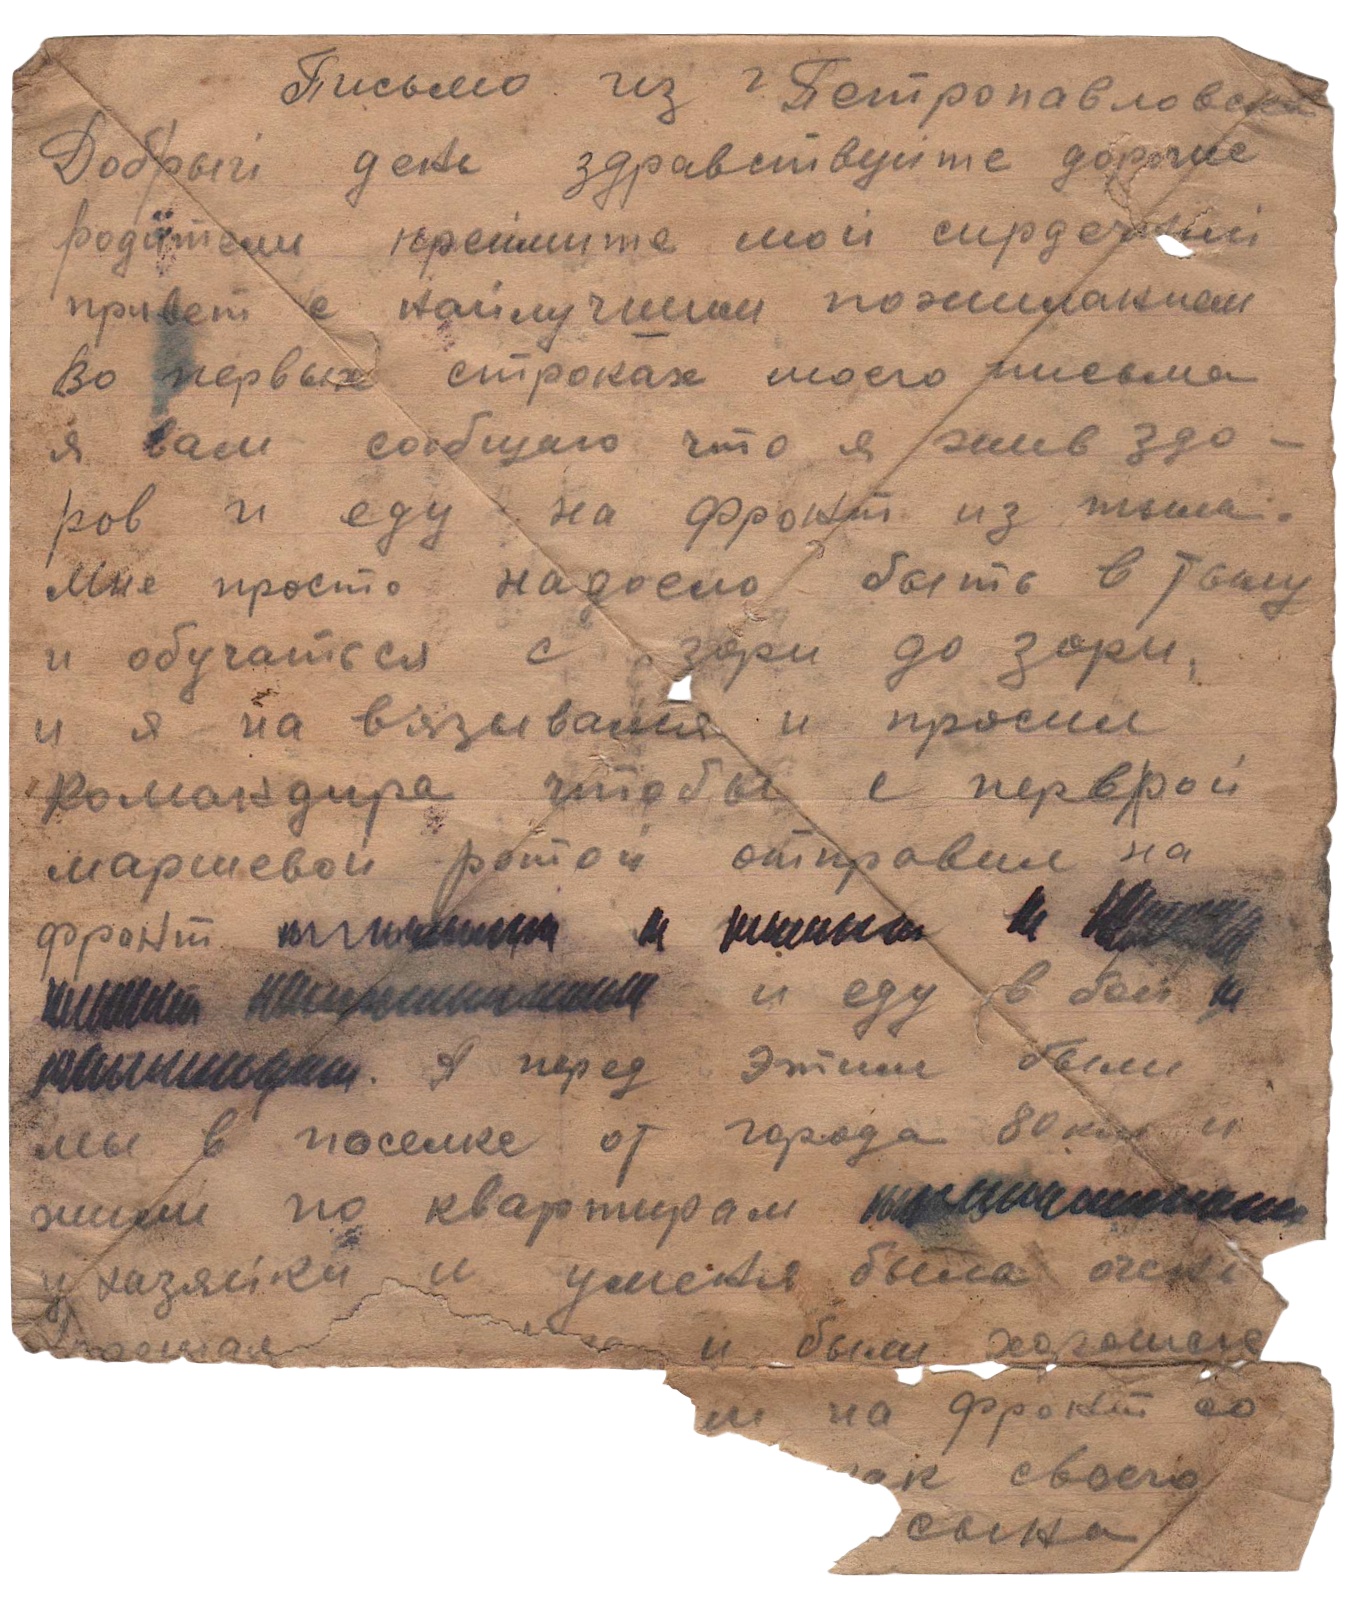 Письмо из г Петропавловска
Добрый день здравствуйте дорогие
родители примите мой сирдечный
привет с наилучшим пожиланием
Во первых строках моего письма
я вам сообщаю что я жив здо-
ров и еду на фронт из тыла.
Мне просто надоело быть в тылу
и обучаться с зари до зари,
и я на вязывался и просил
командира чтобы с первой
маршевой ротой отправил на
фронт
и еду в бой и
Я перед этим были
мы в поселке от города 80 км и
жили по квартирам
у хазяйки и уменя была очень
и были хорошие
на фронт со
как своего
сына